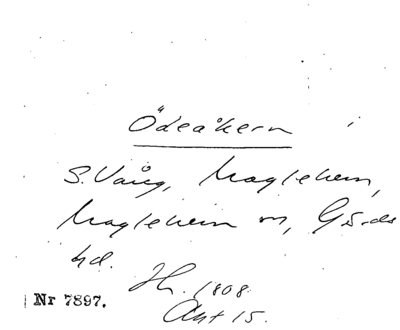 Ödeåkern
S. Vång, Maglehem,
Maglehem sn, Gärds
hd.
1808
Akt 15.
Nr 7897.